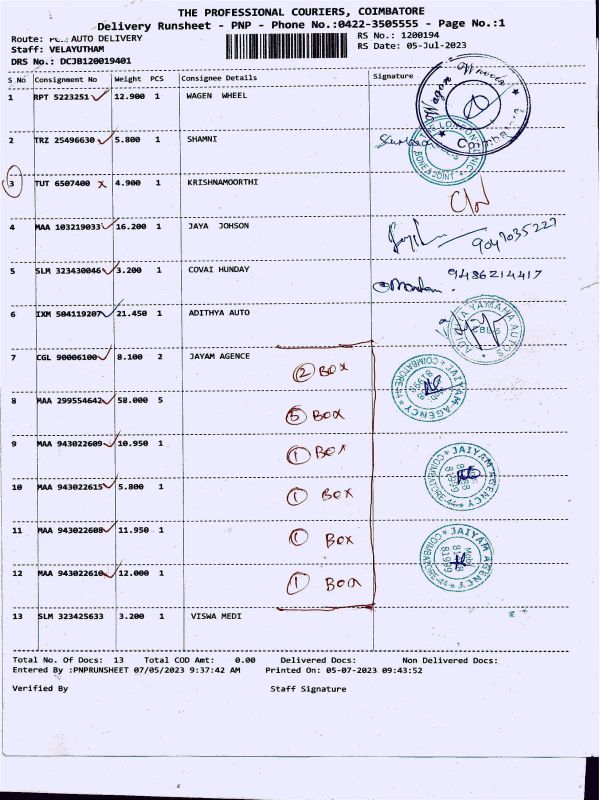 THE PROFESSIONAL COURIERS, COIMBATORE
Delivery Runsheet - PNP - Phone No.:0422-3505555 - Page No.:1
Route: AUTO DELIVERY RS No.: 1200194
Staff: VELAYUTHAM RS Date: 05-Jul-2023
DRS No.: DCJB120019401
S No Consignment No Weight PCS Consignee Details Signature
1 RPT 5223251 12.900 1 WAGEN WHEEL
2 TRZ 25496630 5.800 1 SHAMNI
3 TUT 6507400 x 4.900 1 KRISHNAMOORTHI
4 MAA 103219033 16.200 1 JAYA JOHSON 9047035227
5 SLM 323430046 3.200 1 COVAI HUNDAY 9486214417
6 IXM 504119207 21.450 1 ADITHYA AUTO
7 CGL 90006100 8.100 2 JAYAM AGENCE 2 BOX
8 MAA 299554642 58.000 5 5 BOX
9 MAA 943022609 10.950 1 1 BOX
10 MAA 943022615 5.800 1 1 BOX
11 MAA 943022608 11.950 1 1 BOX
12 MAA 943022610 12.000 1 1 BOX
13 SLM 323425633 3.200 1 VISWA MEDI
JAIYAM AGENCY
COIMBATORE-44
JAIYAM AGENCY
COIMBATORE-44
JAIYAM AGENCY
COIMBATORE-44
Total No. Of Docs: 13 Total COD Amt: 0.00 Delivered Docs: Non Delivered Docs:
Entered By :PNPRUNSHEET 07/05/2023 9:37:42 AM Printed On: 05-07-2023 09:43:52
Verified By Staff Signature